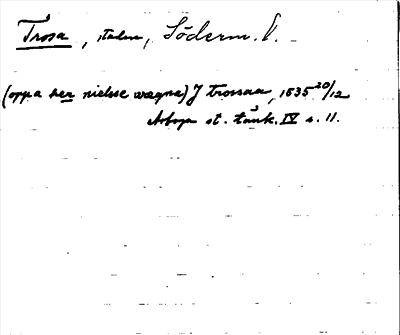 Trosa, staden, Söderm. l.
(oppa her nielsse wægna) J trossaa, 1535 20/12
Arboga st. tänk. IV s. 11.